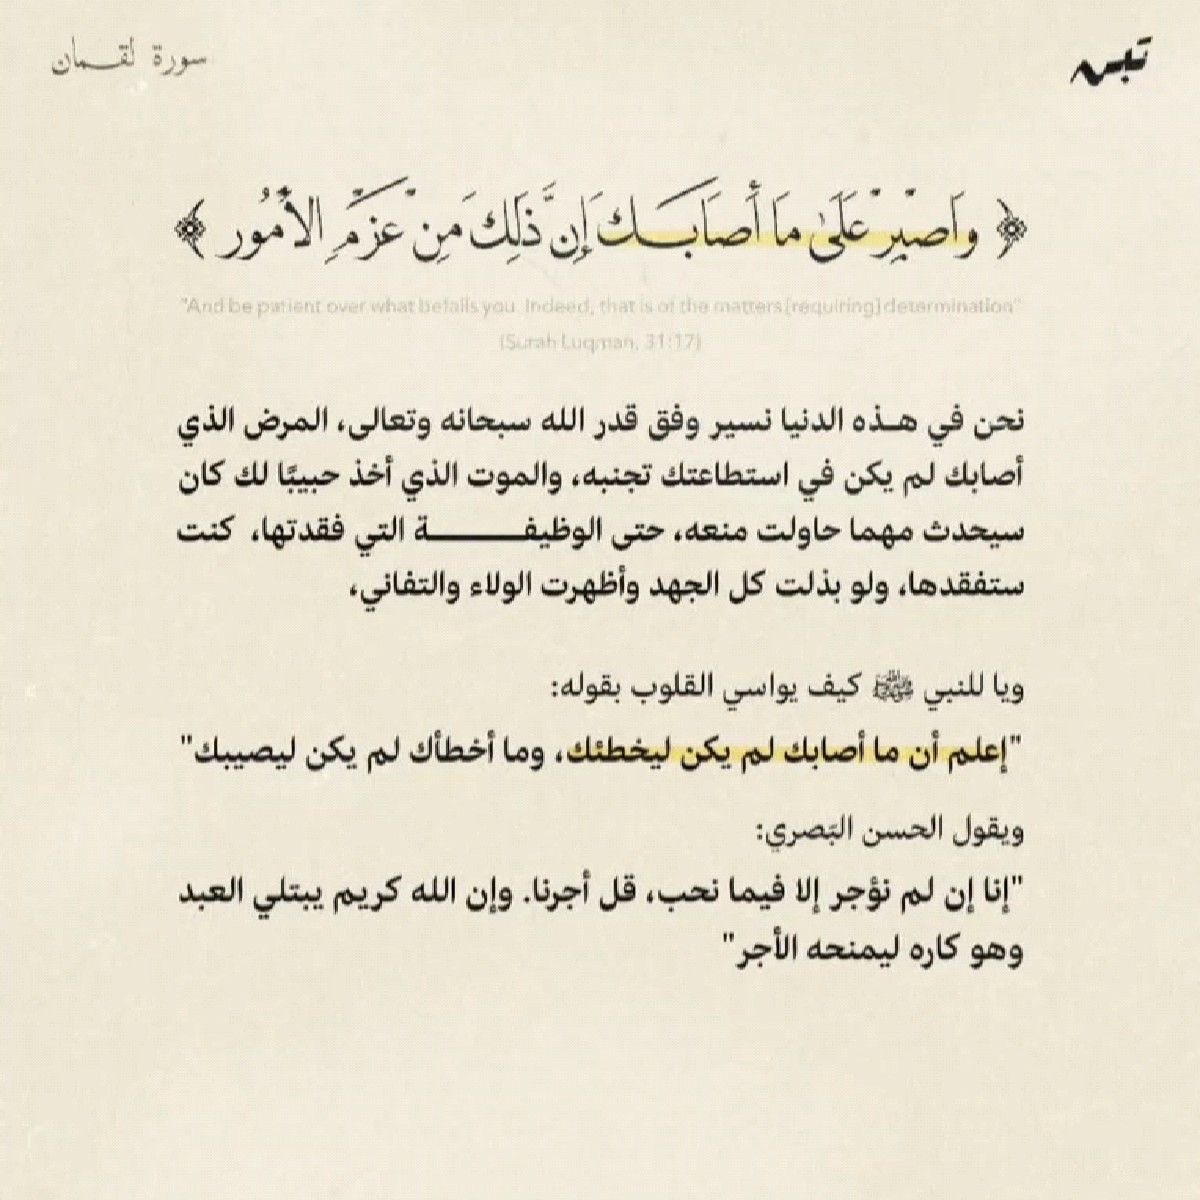 سورة لقمان
﴿ وَاصْبِرْ عَلَىٰ مَا أَصَابَكَ إِنَّ ذَٰلِكَ مِنْ عَزْمِ الْأُمُورِ ﴾
"And be patient over what befalls you. Indeed, that is of the matters [requiring] determination"
(Surah Luqman, 31:17)
نحن في هذه الدنيا نسير وفق قدر الله سبحانه وتعالى، المرض الذي
أصابك لم يكن في استطاعتك تجنبه، والموت الذي أخذ حبيبًا لك كان
سيحدث مهما حاولت منعه، حتى الوظيفة التي فقدتها، كنت
ستفقدها، ولو بذلت كل الجهد وأظهرت الولاء والتفاني،
ويا للنبي ﷺ كيف يواسي القلوب بقوله:
"إعلم أن ما أصابك لم يكن ليخطئك، وما أخطأك لم يكن ليصيبك"
ويقول الحسن البَصري:
"إنا إن لم نؤجر إلا فيما نحب، قل أجرنا. وإن الله كريم يبتلي العبد
وهو كاره ليمنحه الأجر"